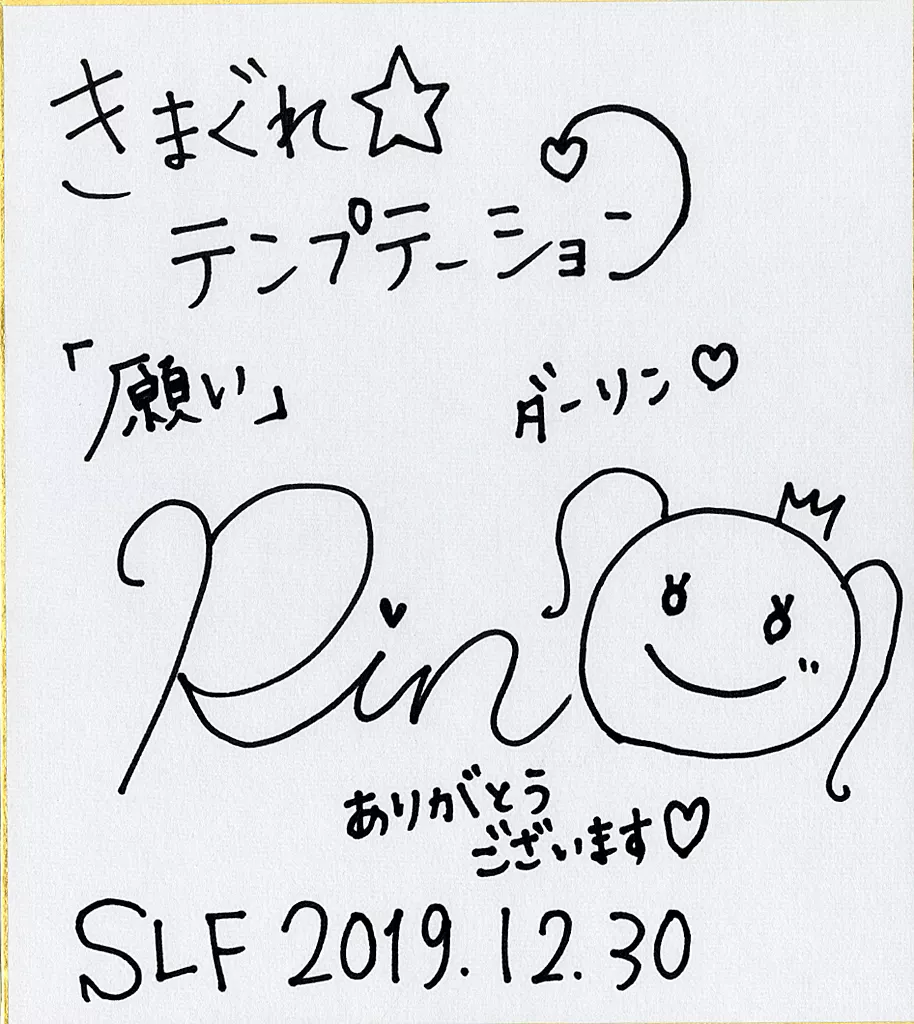 きまぐれ☆
テンプテーション
「願い」 ダーリン♡
Rin
ありがとう
ございます♡
SLF 2019.12.30